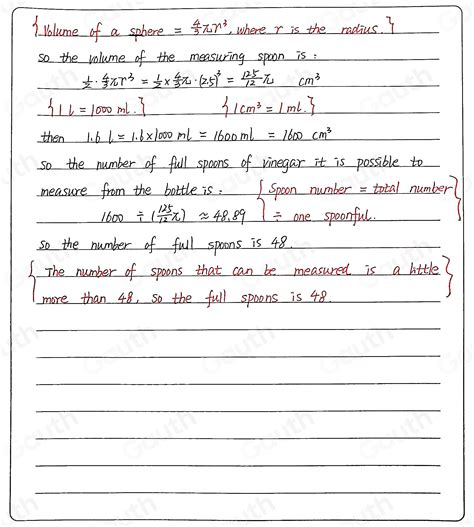 {Volume of a sphere = 4/3 πr³, where r is the radius.}
so the volume of the measuring spoon is :
1/2 · 4/3 πr³ = 1/2 × 4/3 π · (2.5)³ = 125/12 π cm³
{1 l = 1000 ml.} {1 cm³ = 1 ml.}
then 1.6 l = 1.6 × 1000 ml = 1600 ml = 1600 cm³
so the number of full spoons of vinegar it is possible to
measure from the bottle is : {Spoon number = total number
1600 ÷ (125/12 π) ≈ 48.89 ÷ one spoonful.}
so the number of full spoons is 48.
{The number of spoons that can be measured is a little
more than 48, so the full spoons is 48.}
Gauth